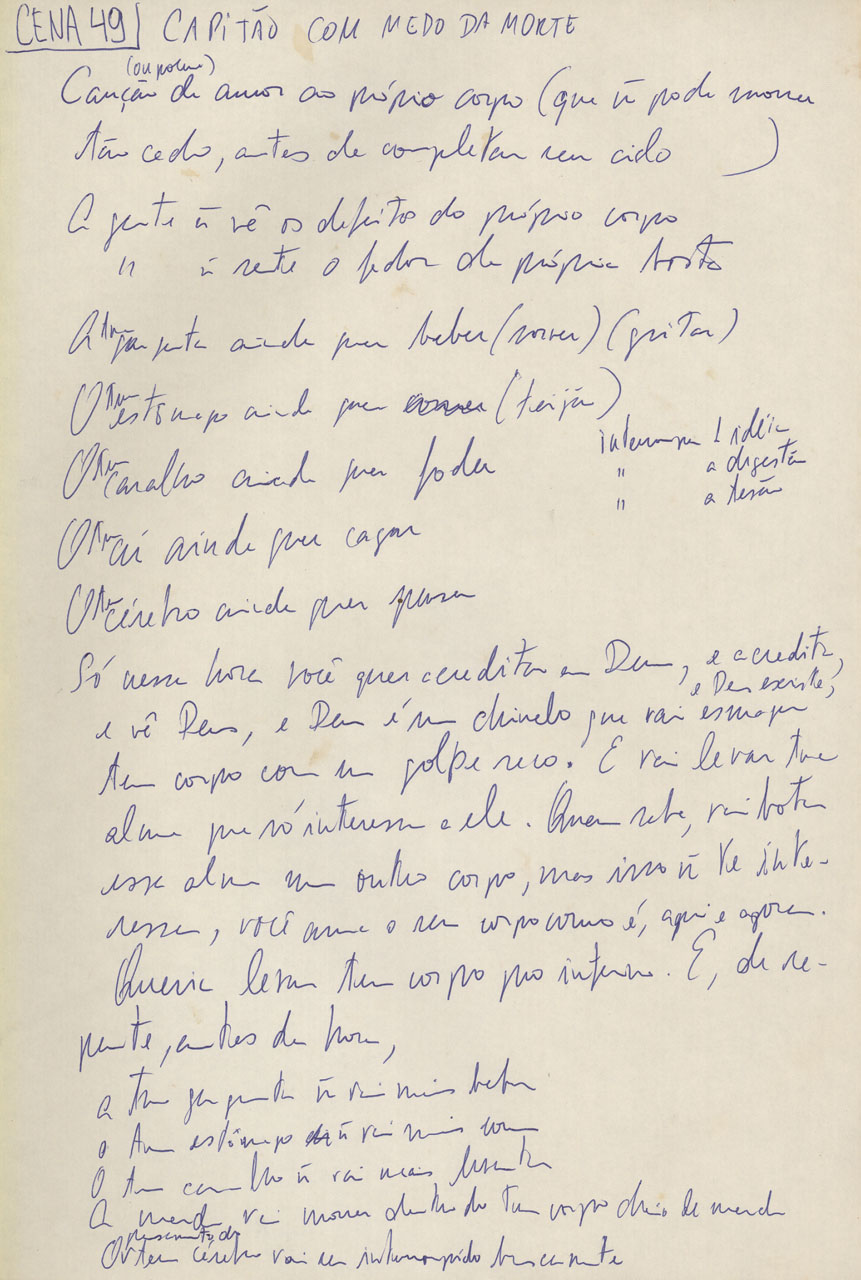 CENA 49 CAPITÃO COM MEDO DA MORTE
(ou poema)
Canção de amor ao próprio corpo (que ñ pode morrer
tão cedo, antes de completar seu ciclo )
A gente ñ vê os defeitos do próprio corpo
" ñ sente o fedor da própria bosta
A tua garganta ainda quer beber (sorver) (gritar)
O teu estômago ainda quer comer (feijão)
interromper 1 idéia
O teu caralho ainda quer foder
" a digestão
" a tesão
O teu cú ainda quer cagar
O teu cérebro ainda quer pensar
Só nessa hora você quer acreditar em Deus, e acredita,
e Deus existe,
e vê Deus, e Deus é um chinelo que vai esmagar
teu corpo com um golpe seco. E vai levar tua
alma que só interessa a ele. Quem sabe, vai botar
essa alma num outro corpo, mas isso ñ te inte-
ressa, você ama o seu corpo como é, aqui e agora.
Queria levar teu corpo pro inferno. E, de re-
pente, antes da hora,
a tua garganta ñ vai mais beber
o teu estômago ñ vai mais comer
O teu caralho ñ vai mais levantar
A merda vai morrer dentro do teu corpo cheio de merda
pensamento do
O teu cérebro vai ser interrompido bruscamente